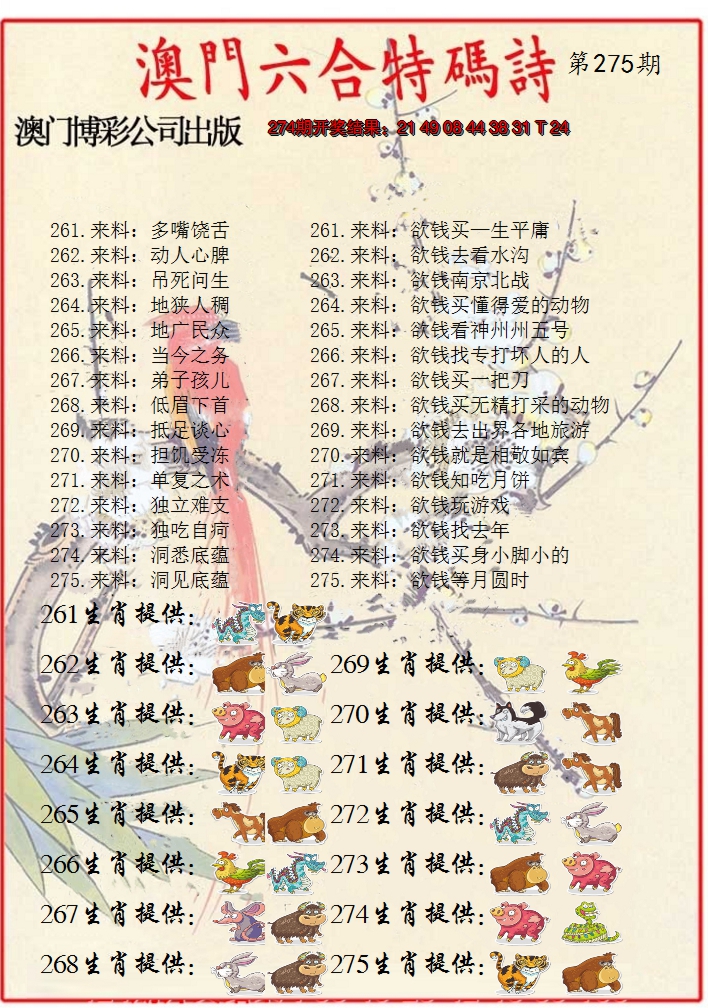 澳門六合特碼詩 第275期
澳门博彩公司出版 274期开奖结果：21 49 08 44 38 31 T 24
261.来料：多嘴饶舌 261.来料：欲钱买一生平庸
262.来料：动人心脾 262.来料：欲钱去看水沟
263.来料：吊死问生 263.来料：欲钱南京北战
264.来料：地狭人稠 264.来料：欲钱买懂得爱的动物
265.来料：地广民众 265.来料：欲钱看神州州五号
266.来料：当今之务 266.来料：欲钱找专打坏人的人
267.来料：弟子孩儿 267.来料：欲钱买一把刀
268.来料：低眉下首 268.来料：欲钱买无精打采的动物
269.来料：抵足谈心 269.来料：欲钱去出界各地旅游
270.来料：担饥受冻 270.来料：欲钱就是相敬如宾
271.来料：单复之术 271.来料：欲钱知吃月饼
272.来料：独立难支 272.来料：欲钱玩游戏
273.来料：独吃自疴 273.来料：欲钱找去年
274.来料：洞悉底蕴 274.来料：欲钱买身小脚小的
275.来料：洞见底蕴 275.来料：欲钱等月圆时
261生肖提供：
262生肖提供： 269生肖提供：
263生肖提供： 270生肖提供：
264生肖提供： 271生肖提供：
265生肖提供： 272生肖提供：
266生肖提供： 273生肖提供：
267生肖提供： 274生肖提供：
268生肖提供： 275生肖提供：